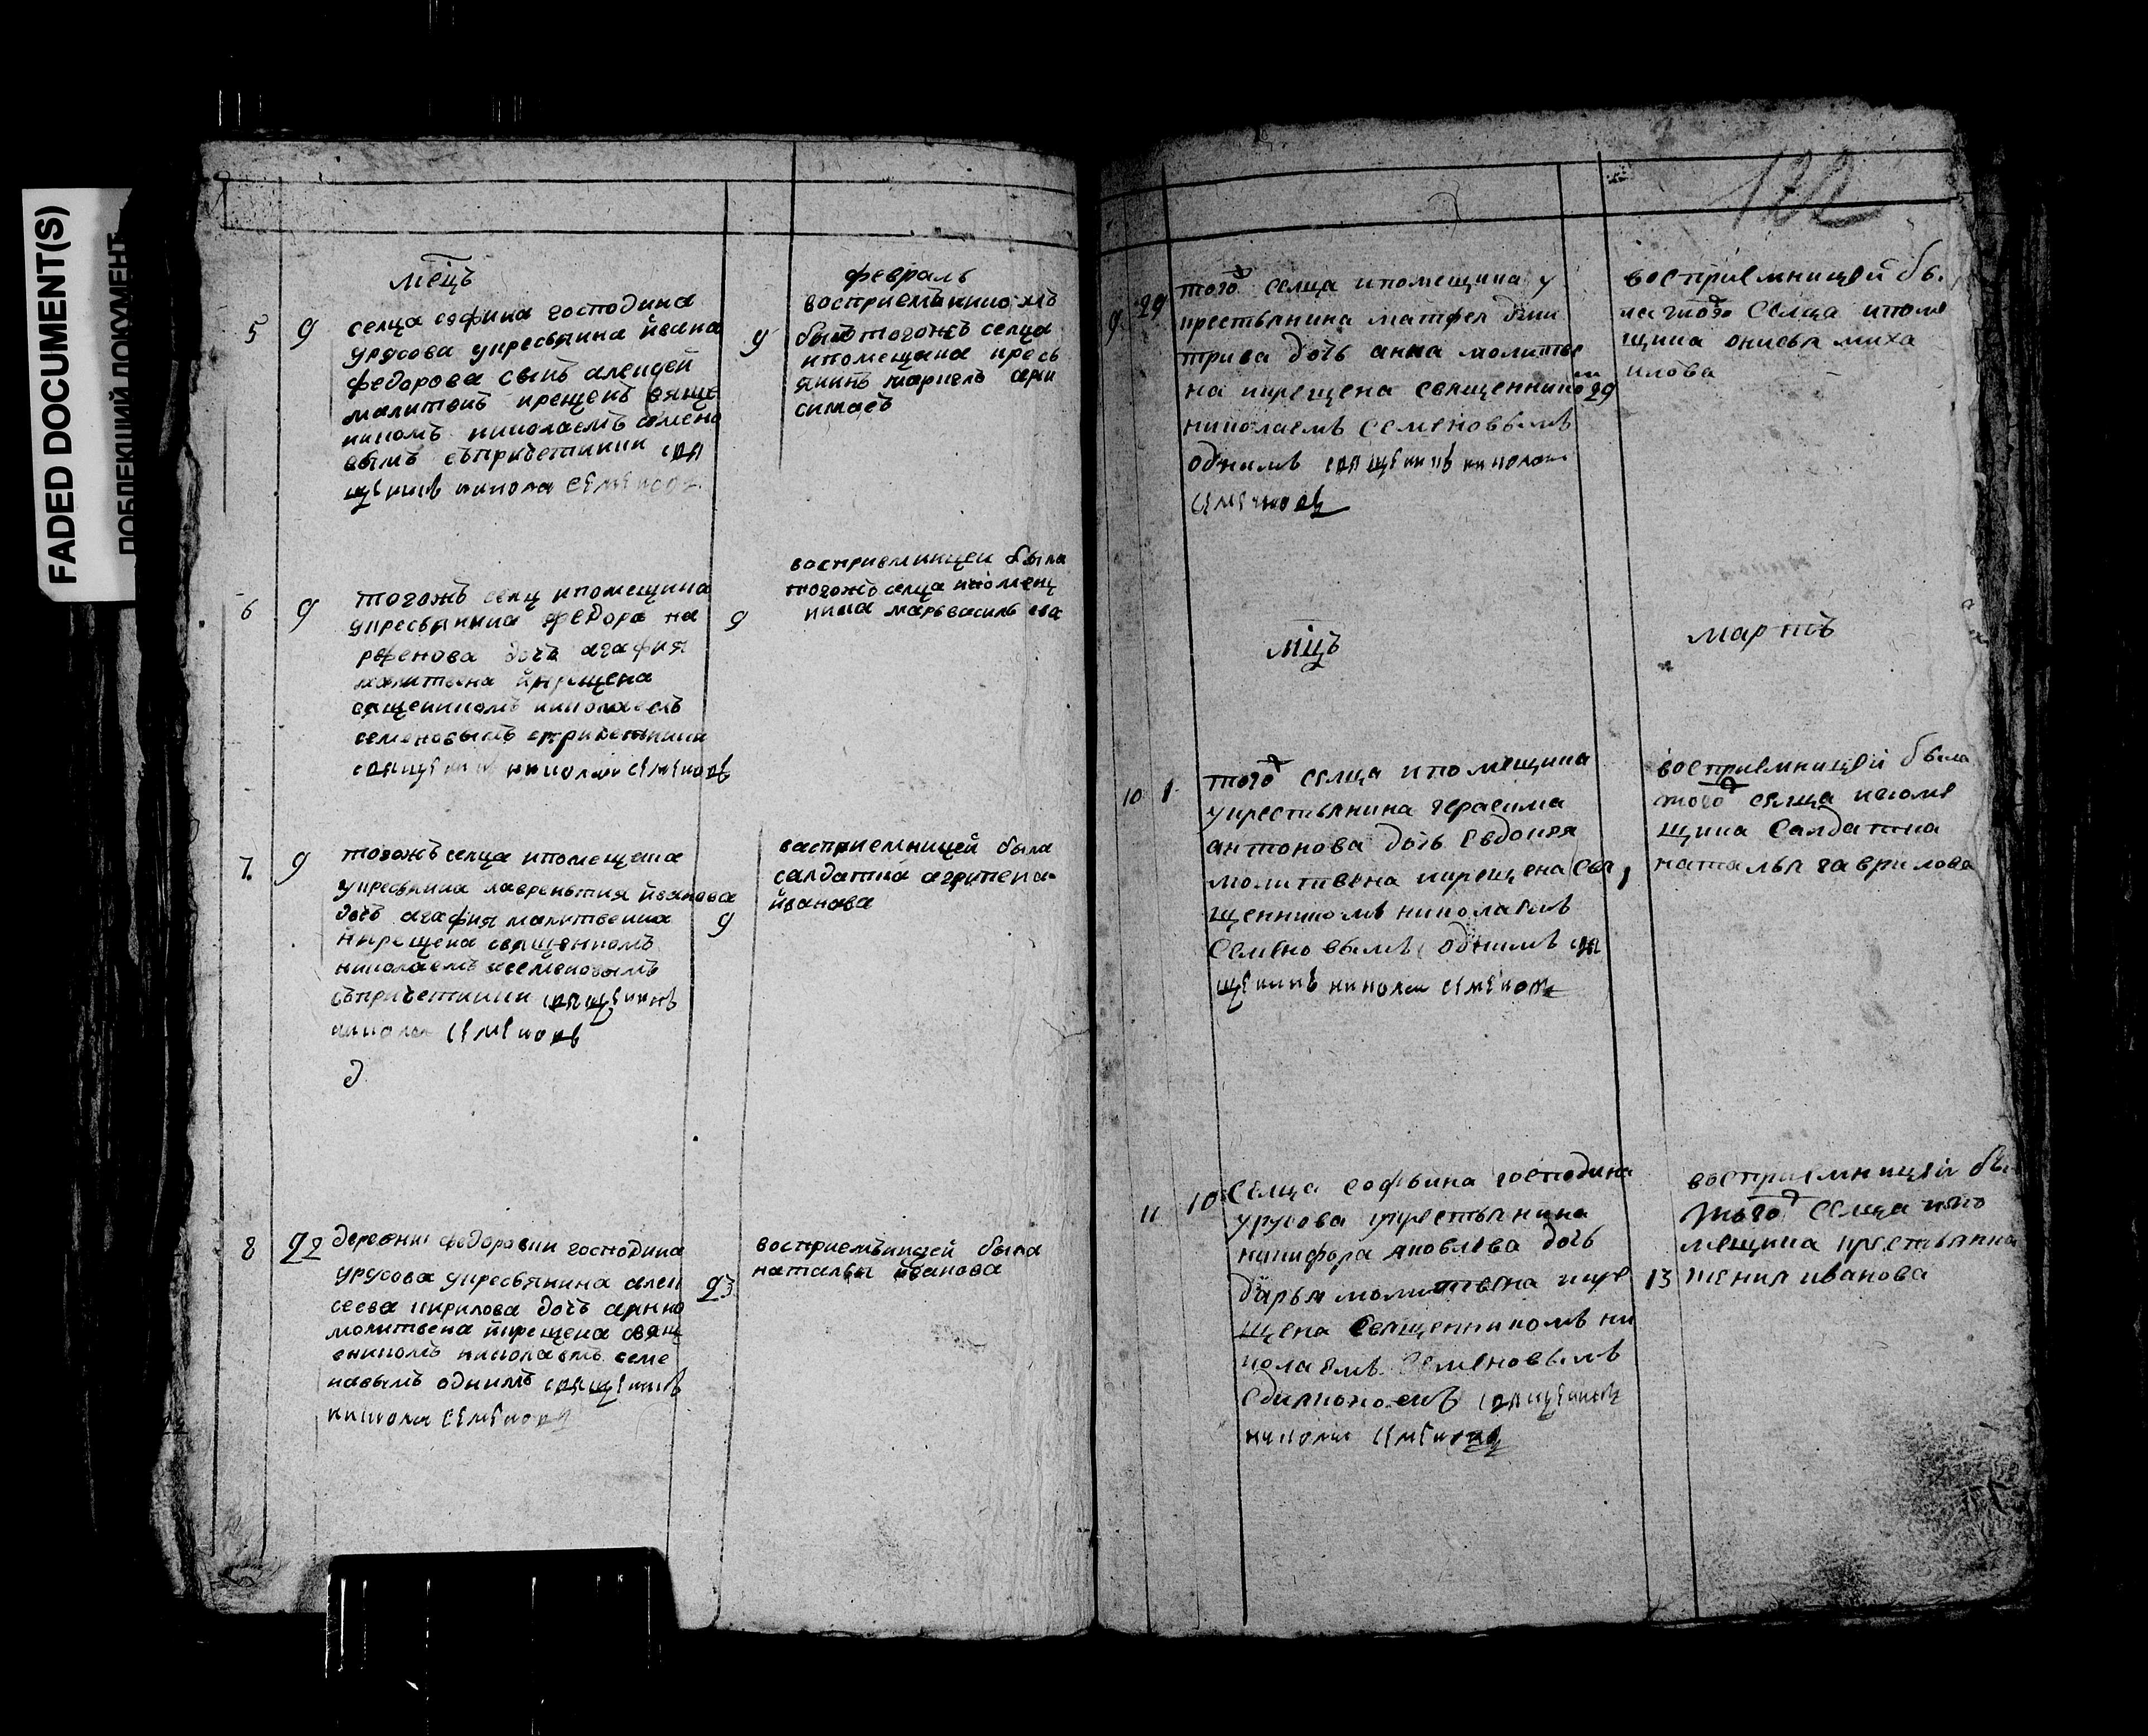 FADED DOCUMENT(S)
ПОБЛЕКШИЙ ДОКУМЕНТ
мец̃ъ
5 9 селца софина господина
урусова укресьянина йвана
федорова сынъ алеѯей
малитвенъ крещенъ
никомъ николаемъ семено
вымъ съпричетники свя
щенникъ никола семеновъ
февраль
восприемникомъ
9 былъ тогожъ селца
ипомещика кресь
янинъ
6 9 тогожъ селц ипомещика
укресьянина федора па
рфенова дочь агафия
малитвена икрещена
священникомъ николаемъ
семеновымъ спричетники
священникъ николаи семеновъ
восприемницеи была
тогожъ селца ипомещ
9 ика марья василь ева
7. 9 тогожъ селца ипомещика
укресьянина лаврентия йванова
дочь агафия малитвенна
икрещена священикомъ
николаемъ семеновымъ
съпричетники священникъ
николаи семеновъ
д
васприемницей была
салдатка агрипена
9 йванова
8 22 деревни федоровки господина
урусова укресьянина алек
сеева кирилова дочь
молитвена икрещена свящ
еникомъ николаемъ семе
навымъ однимъ священникъ
николаи семеновъ
восприемьницей была
23 наталья иванова
122
9 29 того ж селца ипомещика у
крестьянина матфея дми
трива дочь анна молитве
на икрещена священнико м 29
николаемъ семеновымъ
однимъ священникъ николаи
семеновъ
восприемницей бы
ла тогож селца ипоме
щика михa
илова
мц̃ъ
мартъ
10 1 тогож селца ипомещика
укрестьянина герасима
антонова дочь евдокея
молитвена икрещена свя
щенникомъ николаемъ
семеновымъ однимъ свя
щенникъ николаи семеновъ
восприемницей была
тогож селца ипоме
щика салдатка
наталья гаврилова
11 10 селца софьина господина
урусова укрестьянина
никифора яковлева дочь
дарья молитвена икре
щена священникомъ ни
колаемъ семеновымъ
сдияконоемъ священникъ
николаи семеновъ
восприемницей бы
тогож селца ипо
мещика крестьянка
13 ксения иванова